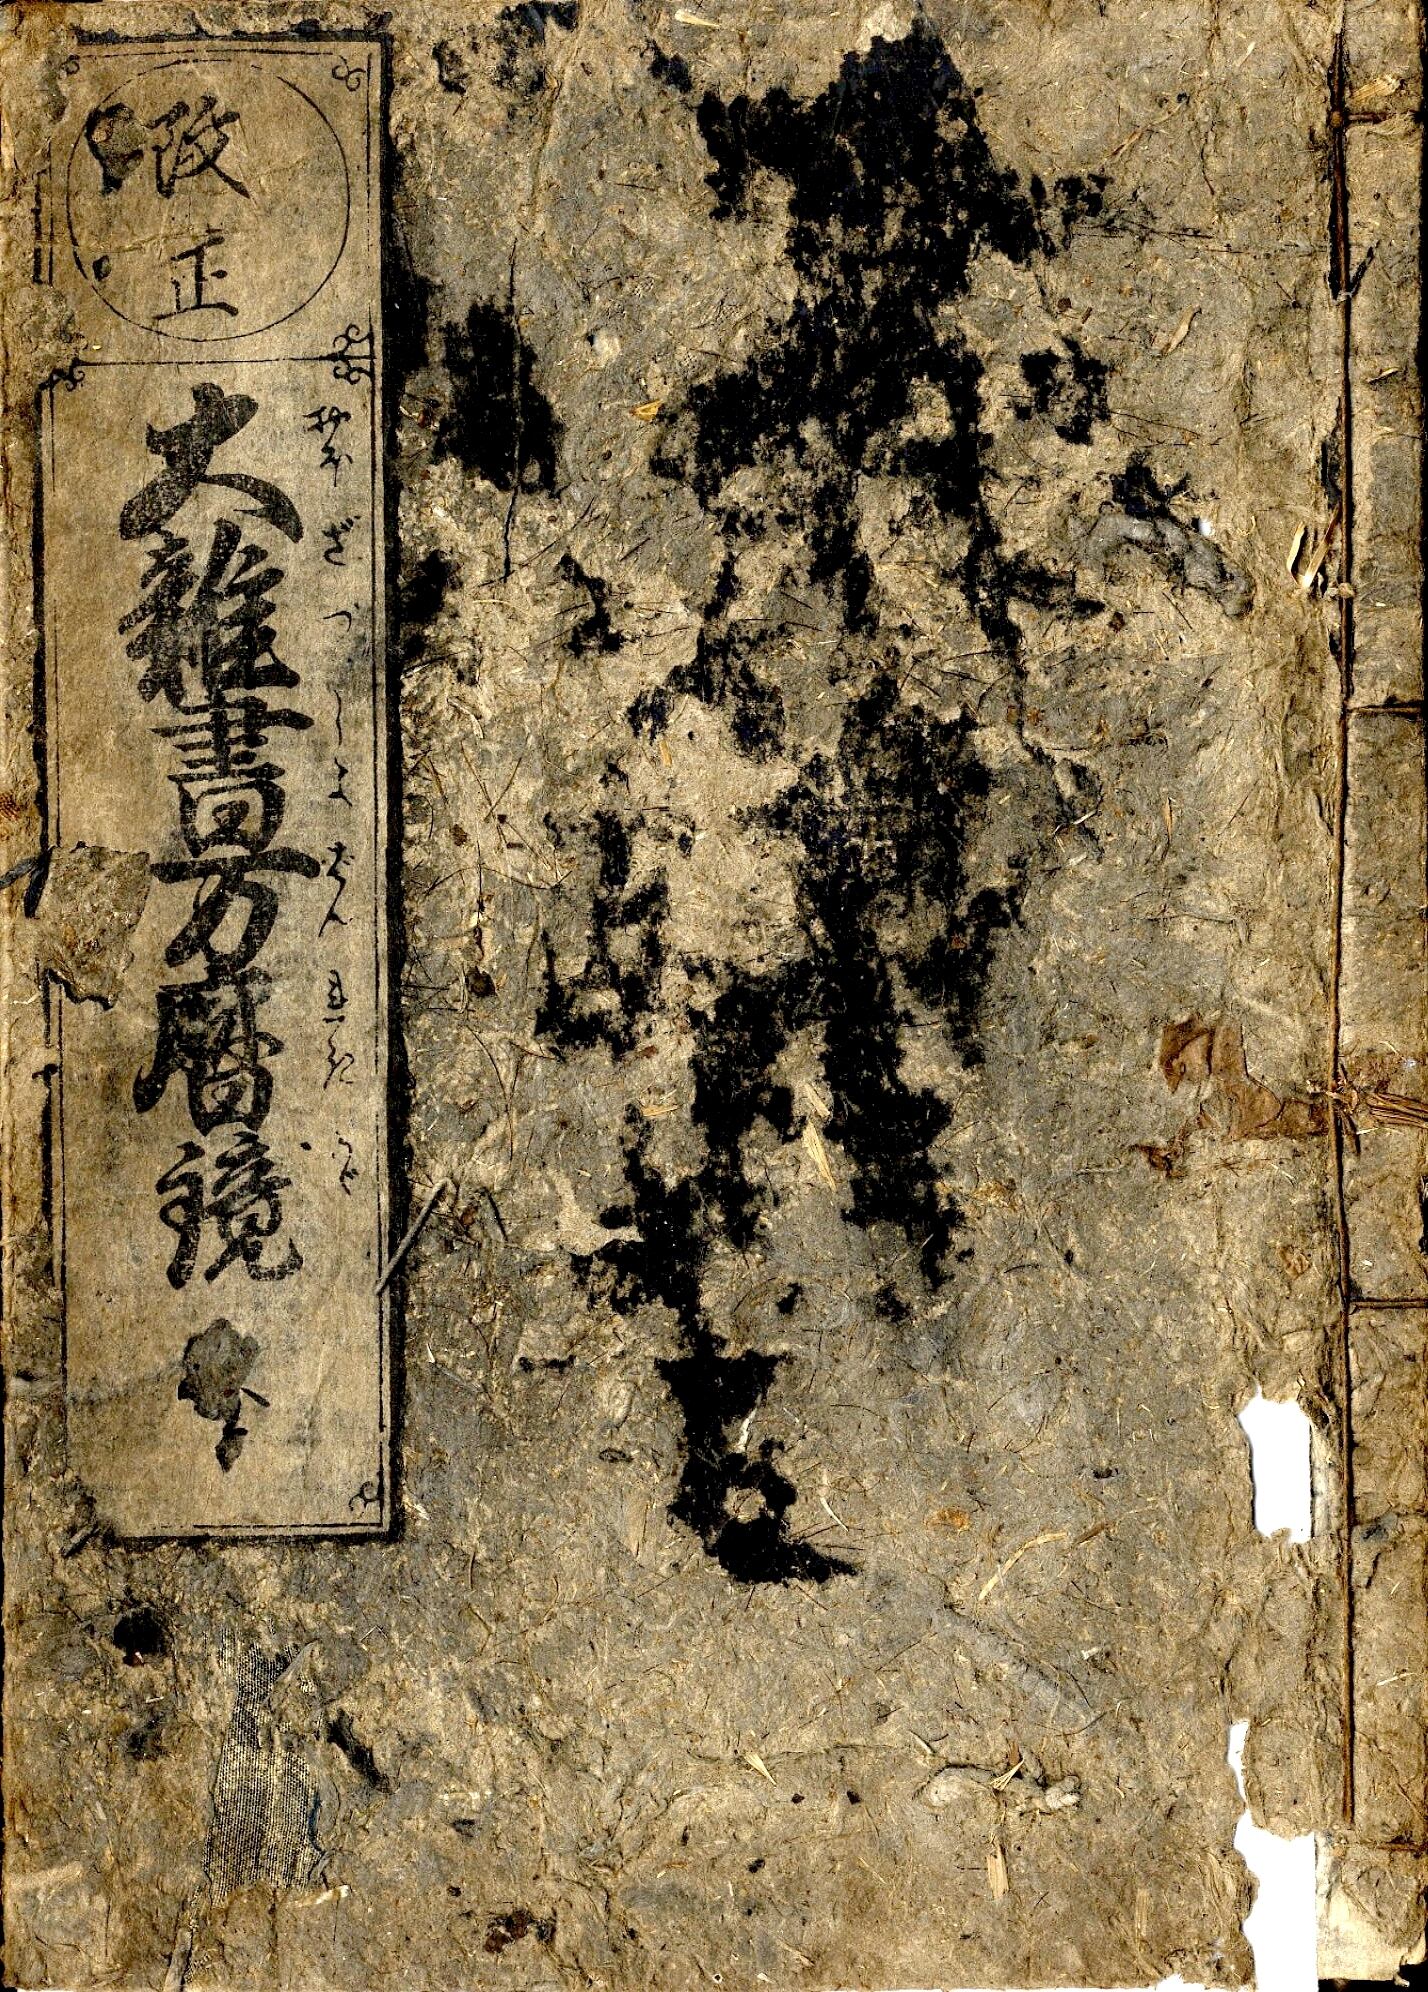 改
正
大雑書万暦鏡
おほざつしよばんれきかゞ